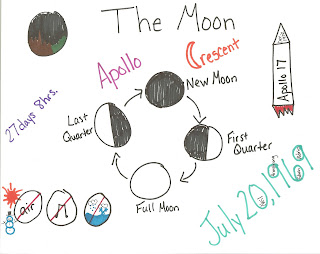 The Moon
Apollo
Crescent
New Moon
Apollo 17
27 days 8hrs.
Last
Quarter
First
Quarter
Full Moon
air
July 20, 1969